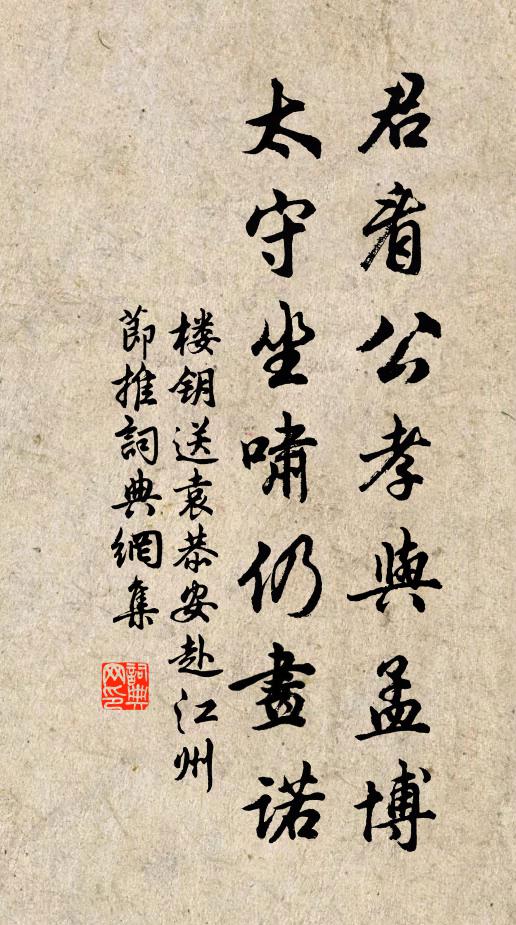 君看公孝與孟博
太守坐嘯仍畫諾
楼钥送袁恭安赴江州
節推詞典網集
詞典网印